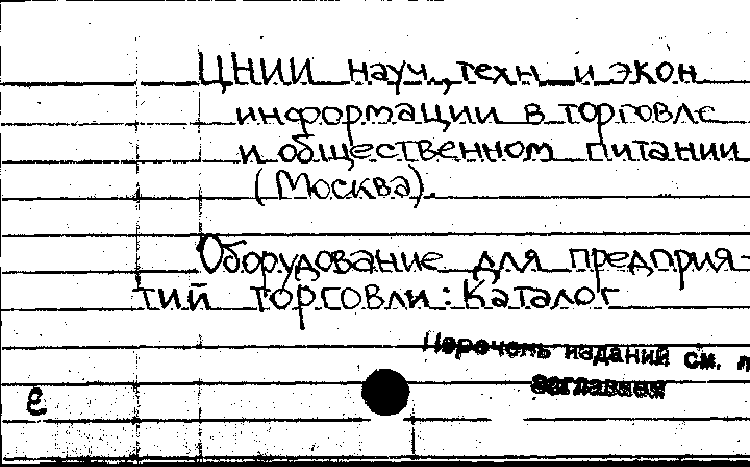 ЦНИИ науч., техн. и экон
информации в торговле
и общественном питании
(Москва).
Оборудование для предприя-
тий торговли: Каталог
Перечень изданий см. п
заглавием
е